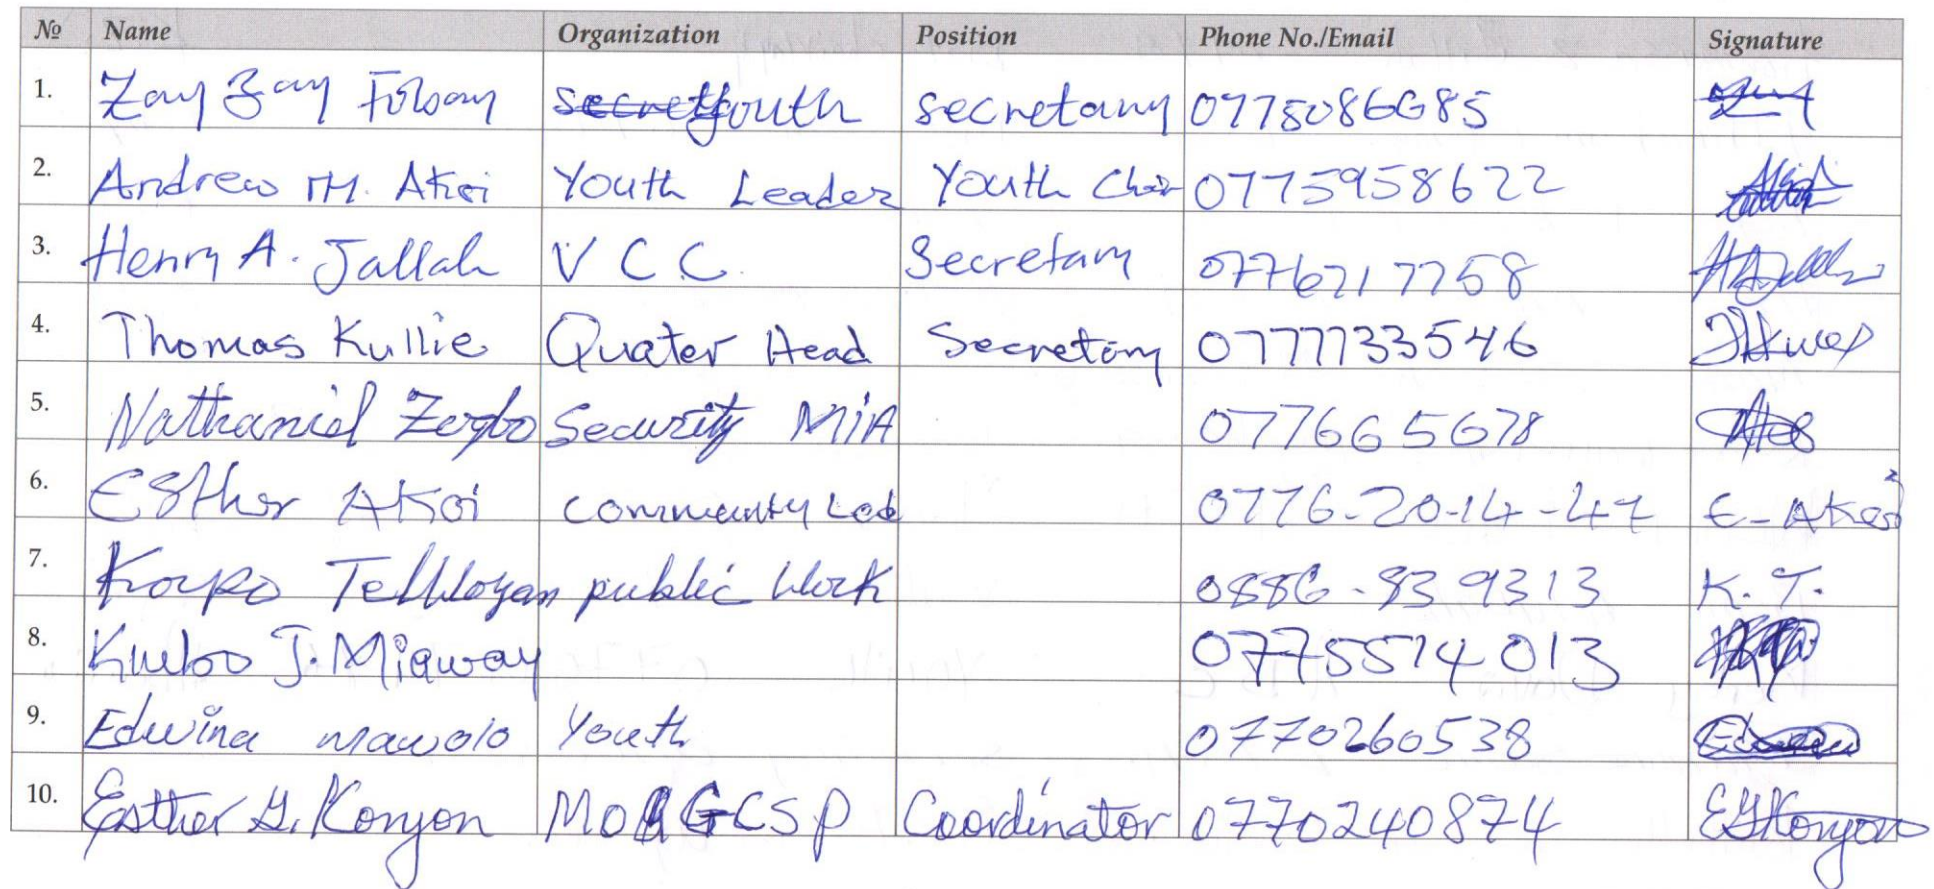 № Name Organization Position Phone No./Email Signature
1. Zay Zay Folsay Youth secretary 0775086685
2. Andrew M. Akoi Youth Leader Youth Chair 0775958622
3. Henry A. Jallah V C C. Secretary 0776717758
4. Thomas Kullie Quater Head Secretary 0777733546
5. Nathaniel Zergbo Security MIA 077665678
6. Esther Akoi Community Lead 0776-20-14-47 E-Akoi
7. Korpo public Work 0886-839313 K. T.
8. J. Migway 0775574013
9. Edwina mawolo Youth 0770260538
10. Esther G. Konyon MoGCSP Coordinator 0770240874 EGKonyon